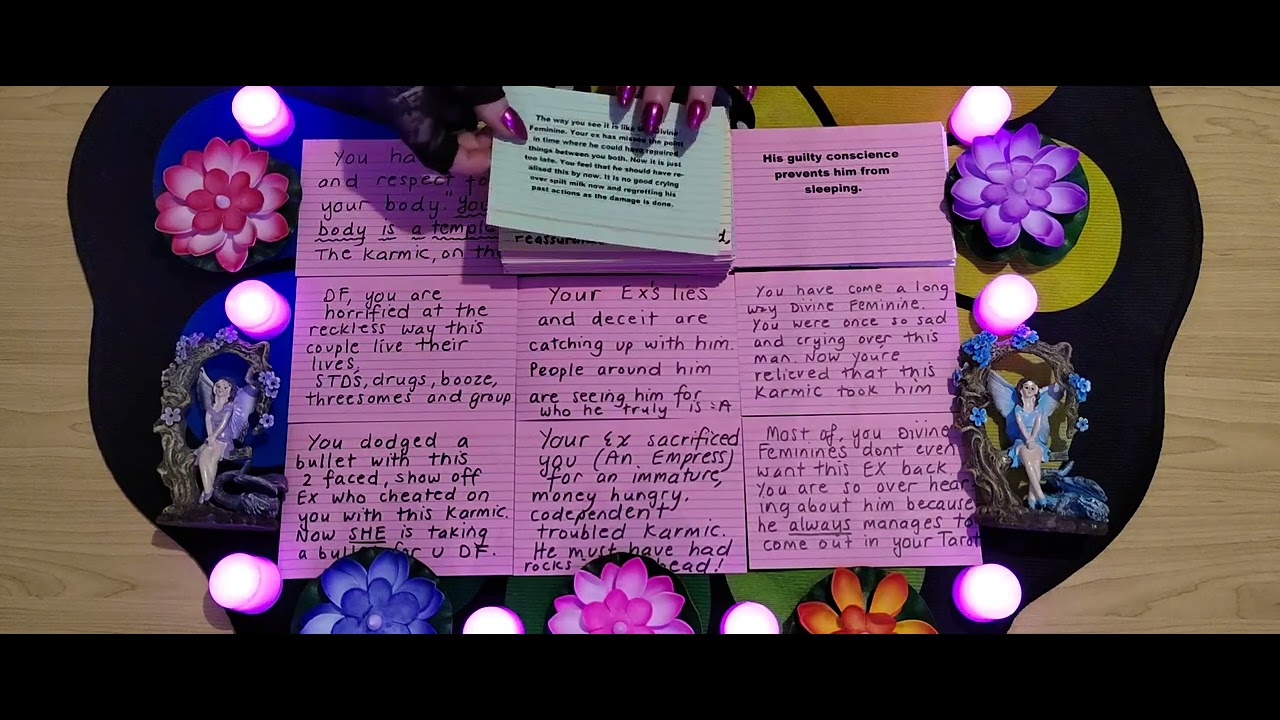 You ha
and respect fo
your body. "You
body is a temple
The Karmic, on th
The way you see it is like this Divine
Feminine. Your ex has missed the point
in time where he could have repaired
things between you both. Now it is just
too late. You feel that he should have re-
alised this by now. It is no good crying
over spilt milk now and regretting his
past actions as the damage is done.
His guilty conscience
prevents him from
sleeping.
DF, you are
horrified at the
reckless way this
couple live their
lives,
STDS, drugs, booze,
threesomes and group
Your Ex's lies
and deceit are
catching up with him.
People around him
are seeing him for
who he truly is :A
You have come a long
way Divine Feminine.
You were once so sad
and crying over this
man. Now youre
relieved that this
Karmic took him
You dodged a
bullet with this
2 faced, show off
Ex who cheated on
you with this Karmic.
Now SHE is taking
a bullet for U DF.
Your Ex sacrificed
you (An. Empress)
for an immature,
money hungry,
codependent
troubled Karmic.
He must have had
rocks head!
Most of, you Divine
Feminines dont even
want this EX back.
You are so over hear-
ing about him because
he always manages to
come out in your Tarot